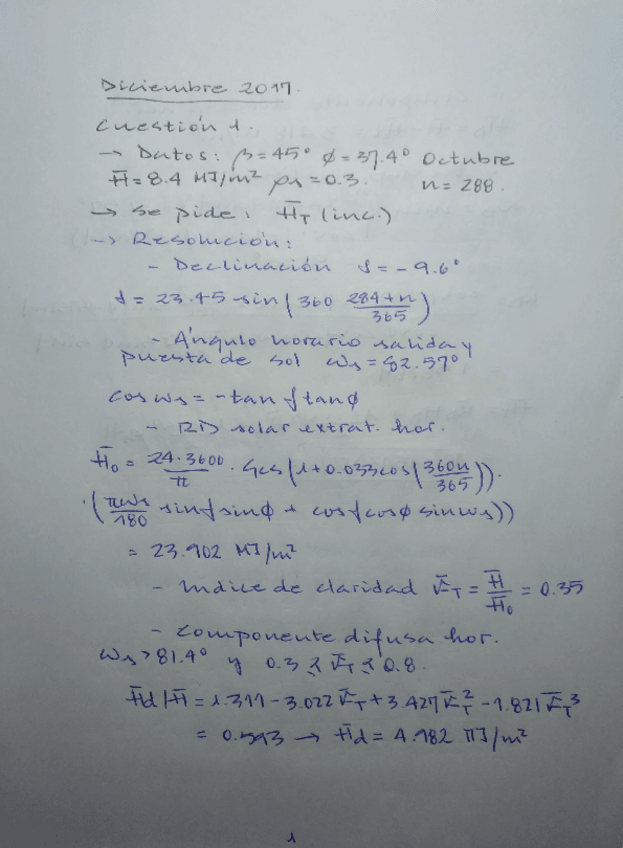 Diciembre 2017.
Cuestión 1.
→ Datos: β=45° φ=37.4° Octubre
H̄=8.4 MJ/m² ρs=0.3. n=288.
→ Se pide: H̄_T (inc.)
→ Resolución:
- Declinación δ=-9.6°
δ=23.45 sin(360 (284+n)/365)
- Ángulo horario salida y
puesta de sol ωs=82.57°
cos ωs=-tan δ tan φ
- RD solar extrat. hor.
H̄₀ = 24·3600/π · Gcs(1+0.033cos(360n/365))·
·(πωs/180 sin δ sin φ + cos δ cos φ sin ωs))
= 23.902 MJ/m²
- Indice de claridad K̄_T = H̄/H̄₀ = 0.35
- Componente difusa hor.
ωs>81.4° y 0.3 ≤ K̄_T ≤ 0.8.
H̄d/H̄ = 1.311-3.022 K̄_T+3.427 K̄_T²-1.821 K̄_T³
= 0.593 → H̄d = 4.982 MJ/m²
1